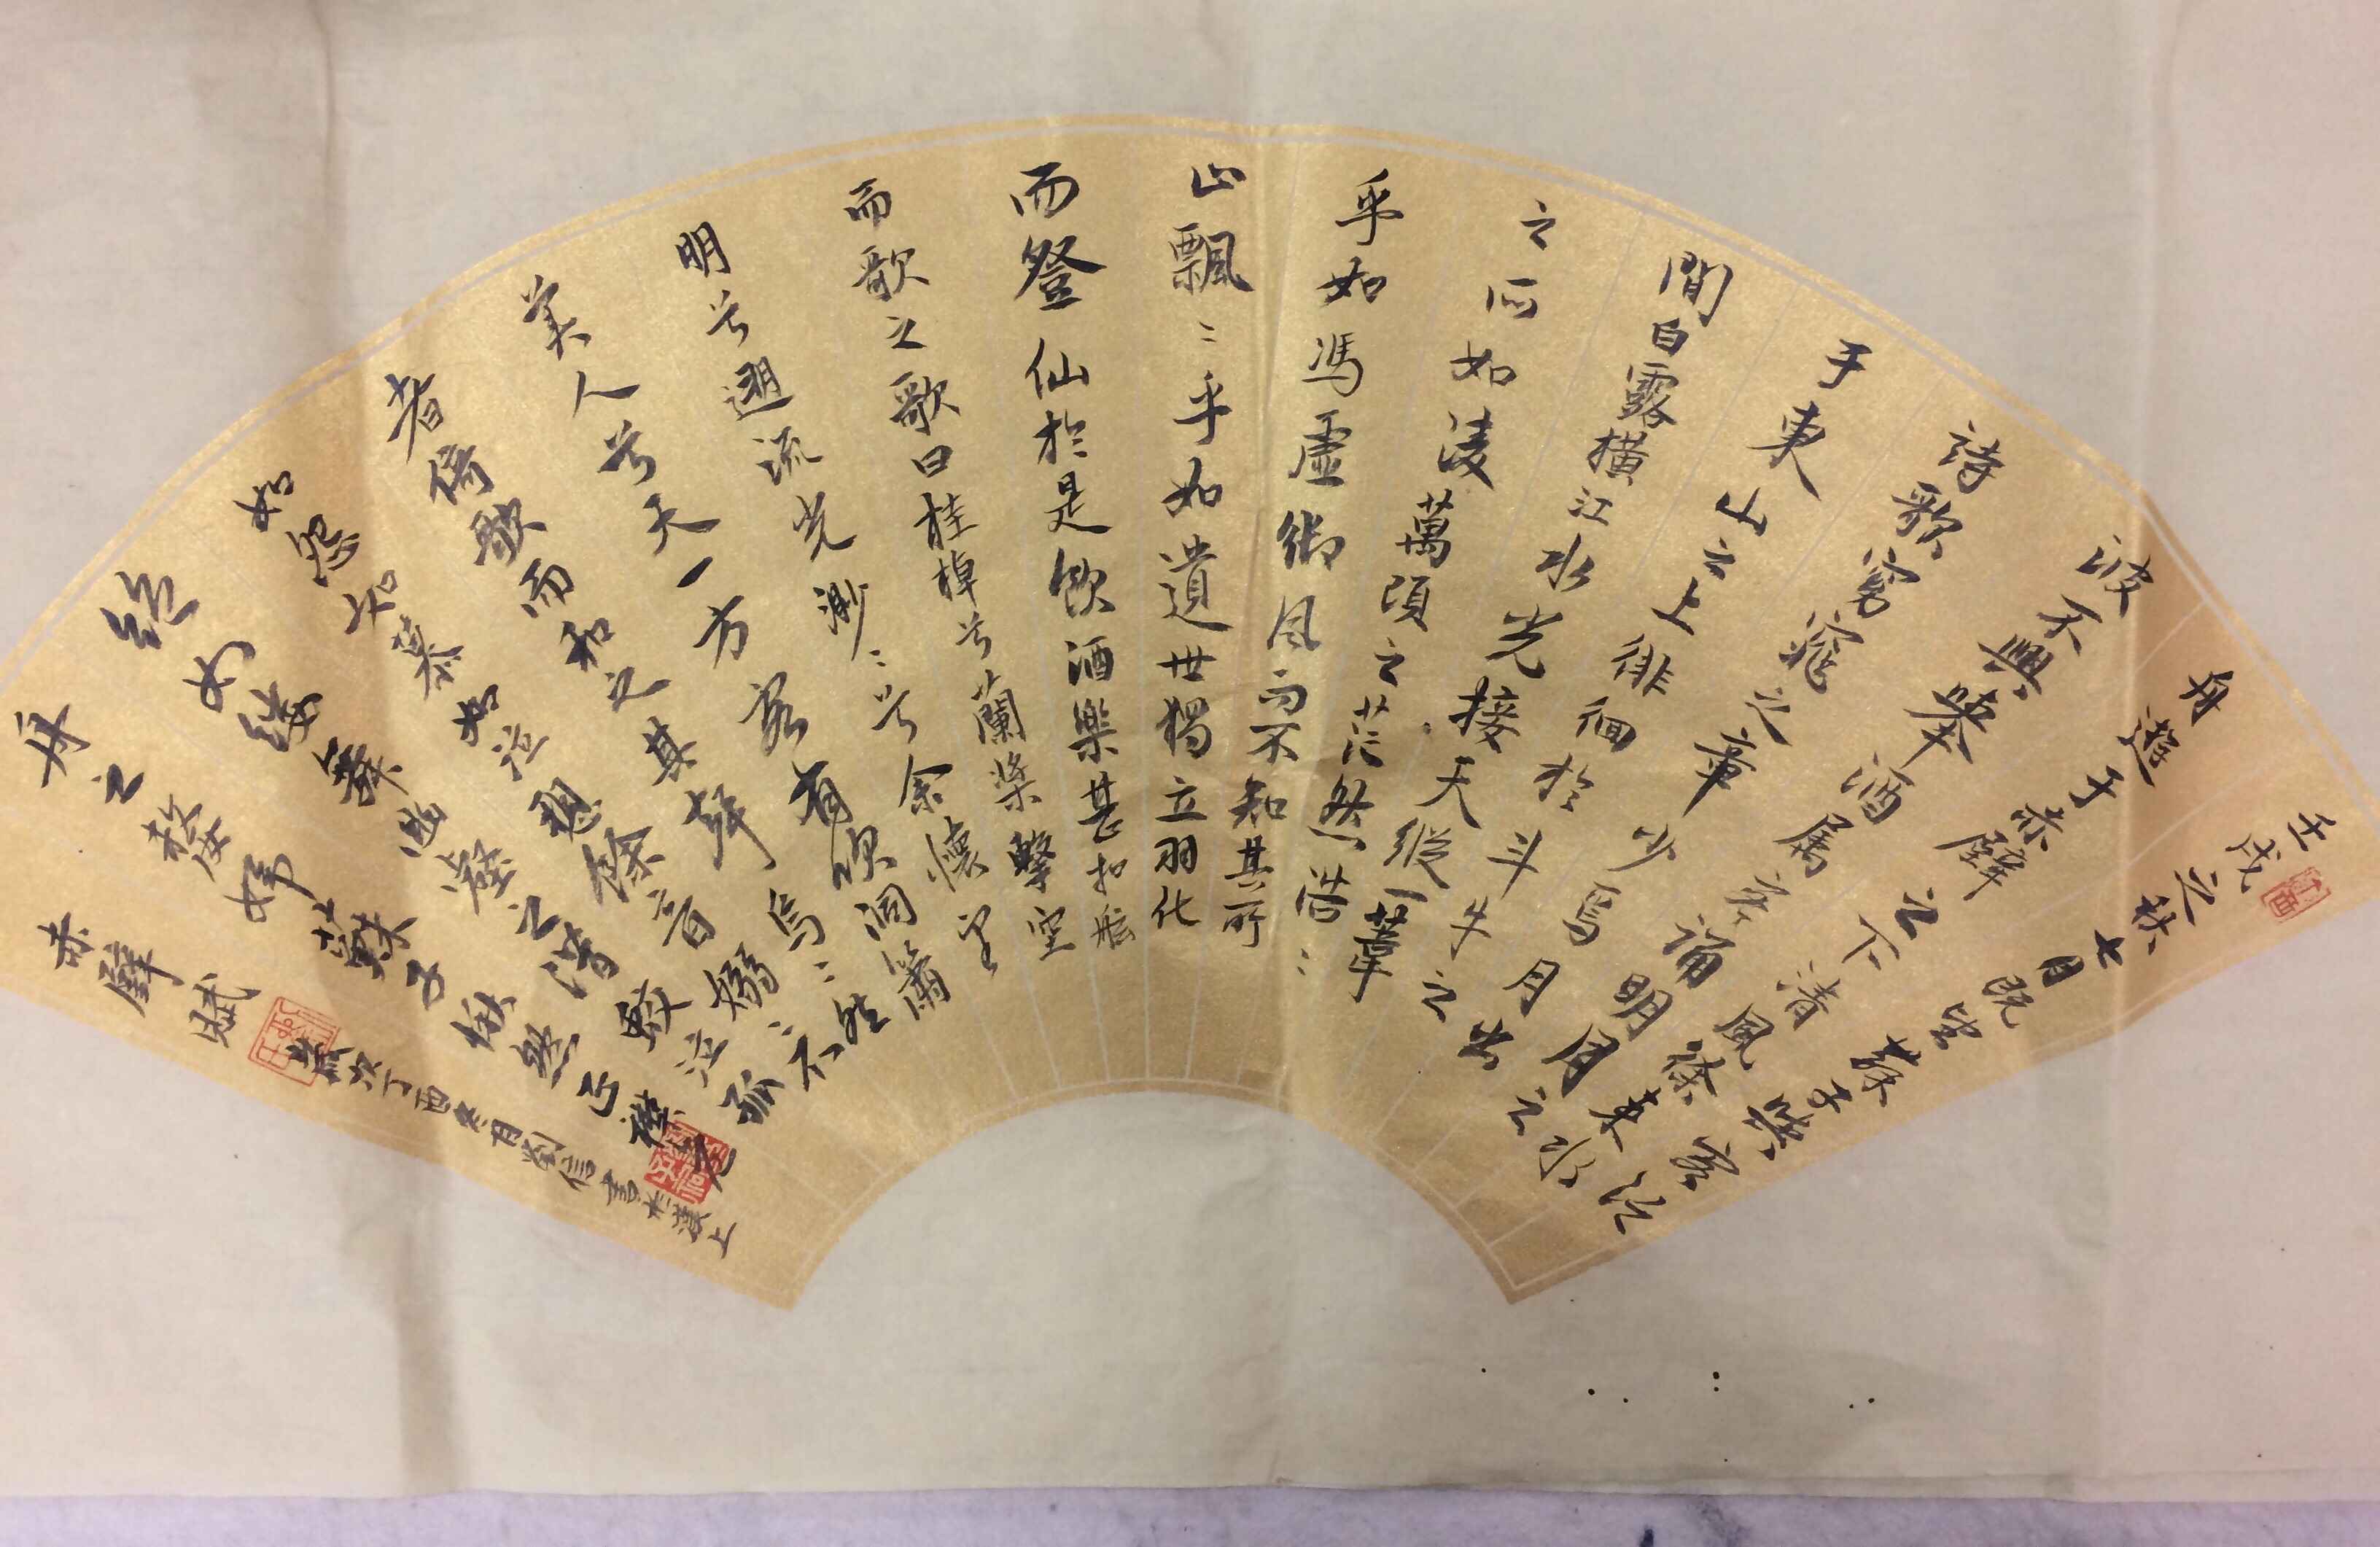 壬戌之秋七月既望蘇子與客泛
舟遊于赤壁之下清風徐來水
波不興舉酒属客誦明月之
詩歌窈窕之章少焉月出
于東山之上徘徊於斗牛之
間白露橫江水光接天縱一葦
之所如淩萬頃之茫然浩〻
乎如馮虛御風而不知其所
止飄〻乎如遺世獨立羽化
而登仙於是飲酒樂甚扣舷
而歌之歌曰桂棹兮蘭槳擊空
明兮遡流光渺〻兮余懷望
美人兮天一方客有吹洞簫
者倚歌而和之其聲烏〻然
如怨如慕如泣餘音嫋〻不
絕如縷舞幽壑之潛蛟泣孤
舟之嫠婦蘇子愀然正襟
赤壁賦
歲次丁酉冬月劉信書於漢上